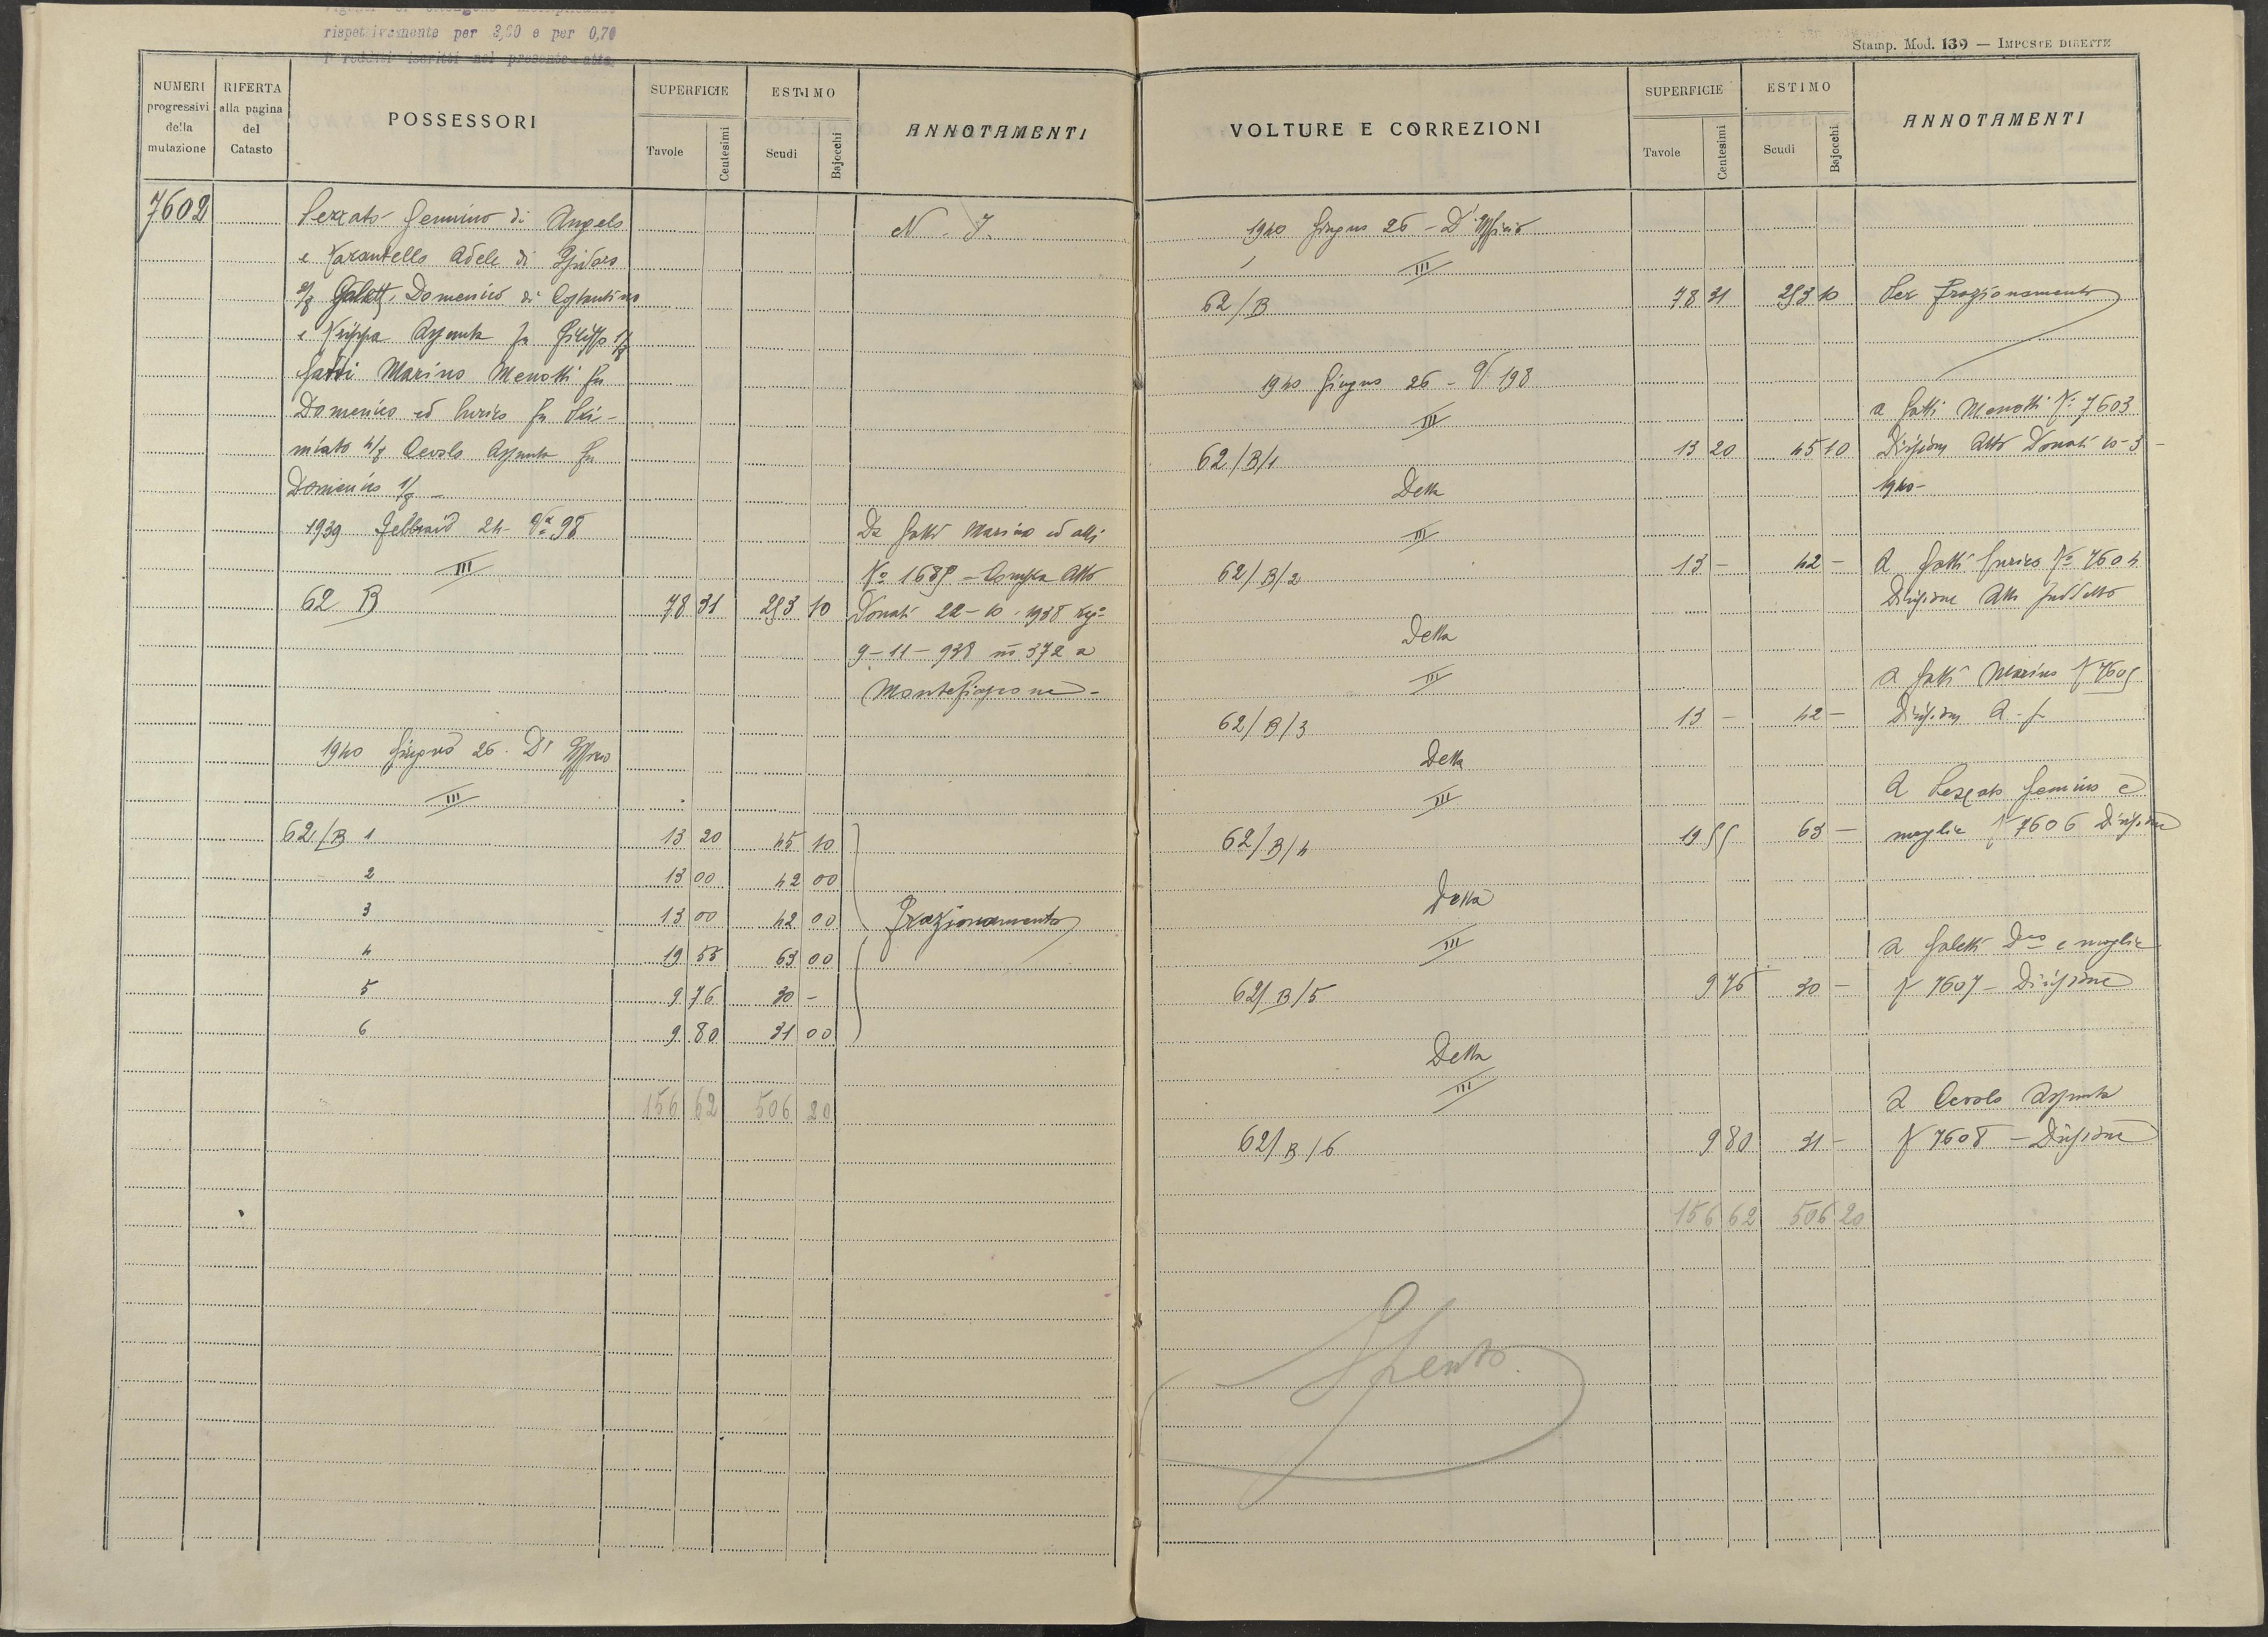 rispettivamente per 3,20 e per 0,70
i redditi iscritti nel presente atto
NUMERI progressivi della mutazione
RIFERTA alla pagina del Catasto
POSSESSORI
SUPERFICIE
Tavole
Centesimi
ESTIMO
Scudi
Bajocchi
ANNOTAMENTI
7602
Gemino di Angelo
N. I.
e Adele di
Galetti Domenico di Costantino
e Assunta fu 1/8
Gatti Marino Menotti fu
Domenico ed Enrico fu
4/8 Cevolo Assunta fu
Domenico 1/8 -
1939 Febbraio 24 - Va 98
Da Gatti Marino ed altri
III
No 1689 - Compra Atto
62 B
78 31
253 10
Donati 22-10-1938 reg.
9-11-938 n 372 a
Montefiascone -
1940 Giugno 26. D' Officio
III
62/B 1
13 20
45 10
2
13 00
42 00
3
13 00
42 00
Frazionamento
4
19 55
63 00
5
9 76
30 -
6
9 80
31 00
156 62
506 20
Stamp. Mod. 139 — IMPOSTE DIRETTE
VOLTURE E CORREZIONI
SUPERFICIE
Tavole
Centesimi
ESTIMO
Scudi
Bajocchi
ANNOTAMENTI
1940 Giugno 26 - D' Officio
III
62/B
78 31
253 10
Per frazionamento
1940 Giugno 26 - V 198
III
a Gatti Menotti No 7603
62/B/1
13 20
45 10
Divisione Atto Donati 10-3-
Detta
1940-
III
62/B/2
13 -
42 -
a Gatti Enrico No 7604
Divisione Atto suddetto
Detta
III
a Gatti Marino N 7605
62/B/3
13 -
42 -
Divisione
Detta
III
a Gemino e
62/B/4
19 55
63 -
moglie N 7606 Divisione
Detta
III
a Galetti Dco e moglie
62/B/5
9 76
30 -
N 7607 - Divisione
Detta
III
a Cevolo Assunta
62/B/6
9 80
31 -
N 7608 - Divisione
156 62
506 20
Spento